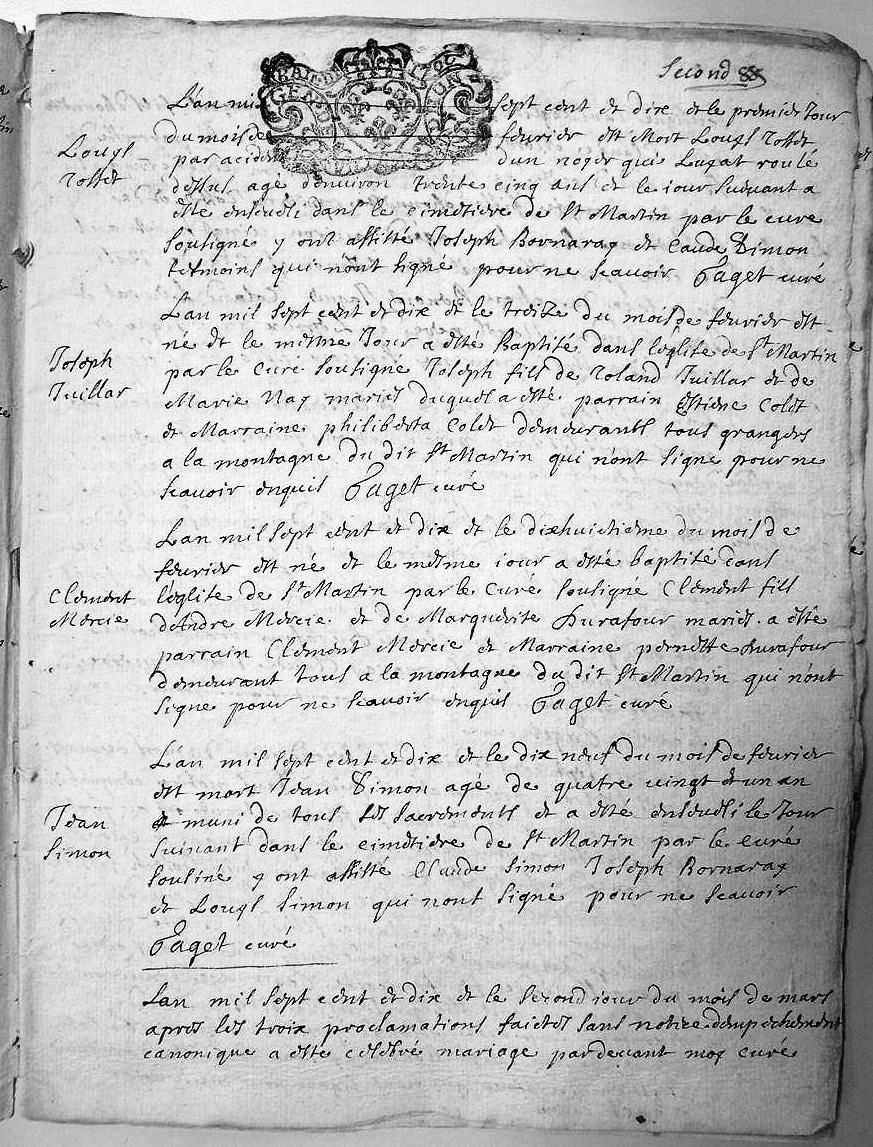 Second
L'an mil sept cent et dix et le premier Jour
du mois de feurier est Mort Louys rosset
par acident dun noyer qui Luyat roulé
dessus agé denuiron trente cinq ans et le iour Suiuant a
esté enseueli dans le cimetiere de St Martin par le curé
sousigné y ont assisté Joseph Bornaray et Caude Simon
tesmoins qui n'ont signé pour ne scauoir Paget curé
Louys
rosset
L'an mil sept cent et dix et le treize du mois de feurier est
né et le mesme Jour a esté Baptisé dans leglise de St Martin
par le Curé sousigné Joseph fils de roland Tuillar et de
Marie Nay mariés duquel a esté parrain Estiene Colet
et Marraine philiberta Colet demeurants tous grangers
a la montagne du dit St Martin qui n'ont signé pour ne
scauoir enquis Paget curé
Joseph
Tuillar
L'an mil sept cent et dix et le dixhuictieme du mois de
feurier est né et le mesme iour a esté baptisé dans
l'eglise de St Martin par le Curé sousigné Clement fils
dendre Mercie et de Marguerite Durafour mariés a esté
parrain Clement Mercie et Marraine pernette durafour
demeurant tous a la montagne du dit St Martin qui n'ont
signe pour ne scauoir enquis Paget curé
Clement
Mercie
L'an mil sept cent et dix et le dix neuf du mois de feurier
est mort Jean Simon agé de quatre uingt et un an
muni de tous les sacrements et a esté enseueli le Jour
suiuant dans le cimetiere de St Martin par le curé
sousiné y ont assisté Claude Simon Joseph Bornaray
et Louys Simon qui nont signé pour ne scauoir
Paget curé
Jean
Simon
Lan mil sept cent et dix et le second iour du mois de mars
apres les troix proclamations faictes sans notice dempechement
canonique a esté celebré mariage par deuant moy curé